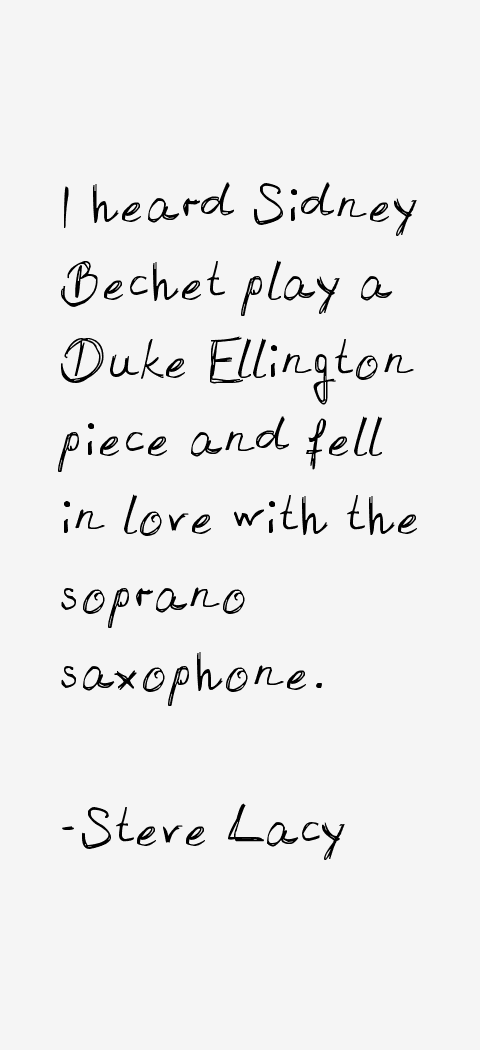 I heard Sidney
Bechet play a
Duke Ellington
piece and fell
in love with the
soprano
saxophone.
-Steve Lacy